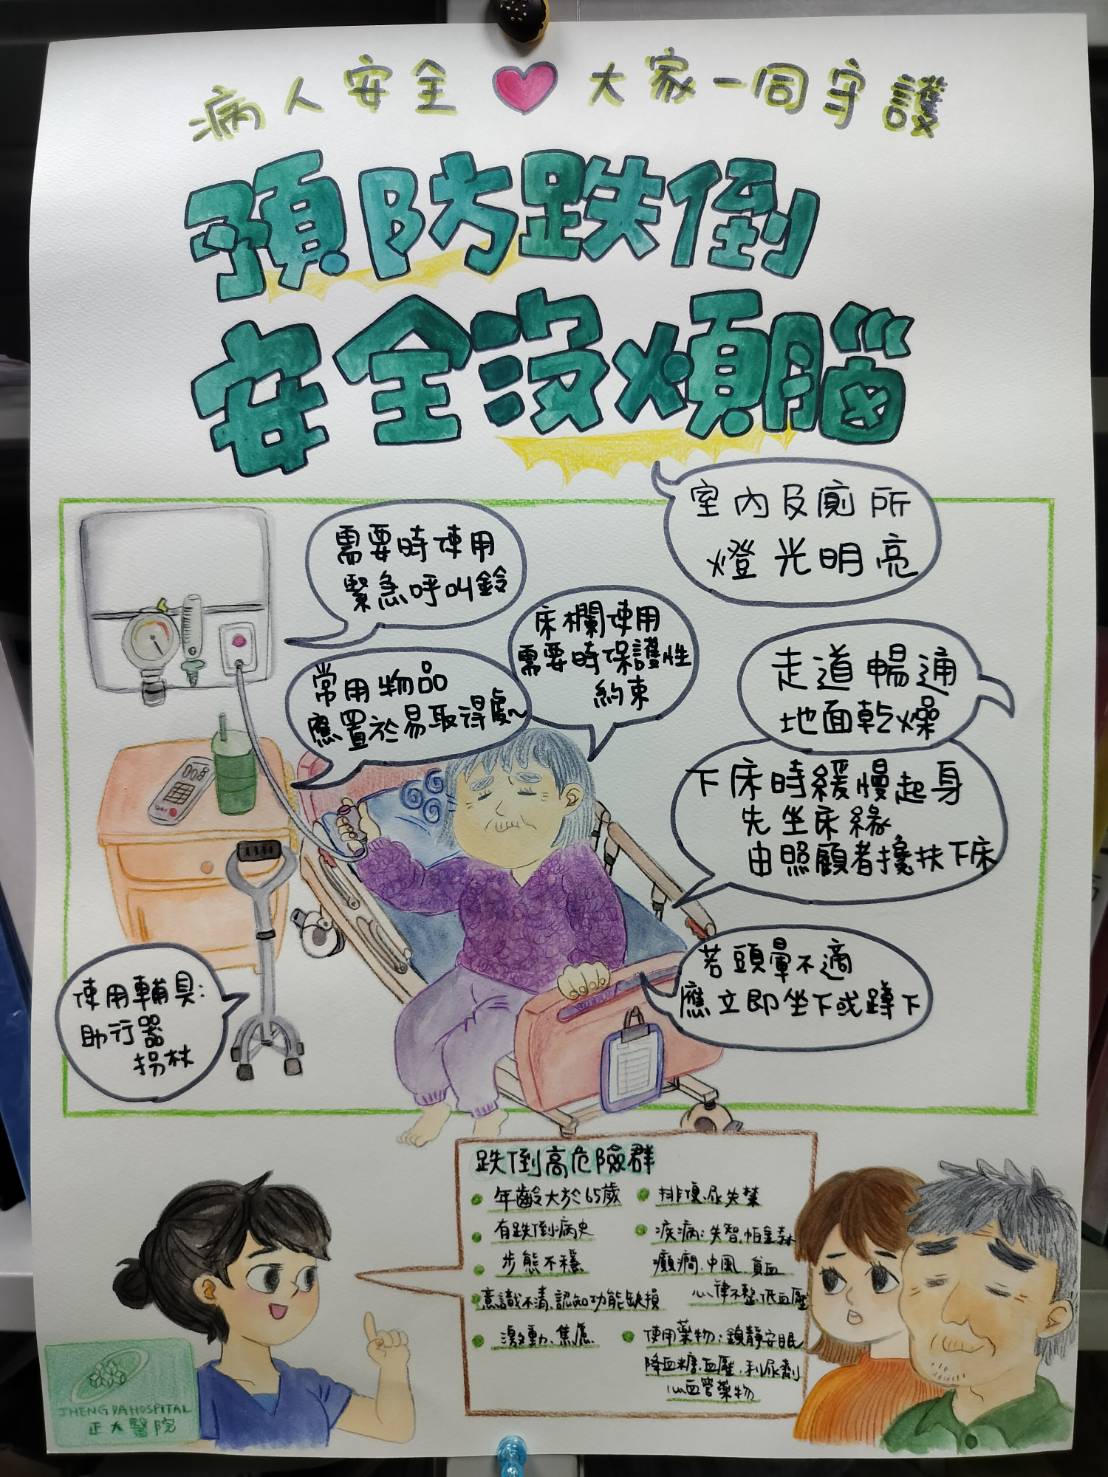 病人安全 大家一同守護
預防跌倒
安全沒煩腦
室內及廁所
燈光明亮
需要時使用
緊急呼叫鈴
床欄使用
需要時保護性
約束
常用物品
應置於易取得處~
走道暢通
地面乾燥
下床時緩慢起身
先坐床緣
由照顧者攙扶下床
若頭暈不適
應立即坐下或蹲下
使用輔具:
助行器
拐杖
跌倒高危險群
年齡大於65歲
有跌倒病史
步態不穩
意識不清、認知功能缺損
激動、焦慮
排便、尿失禁
疾病:失智、帕金森
癲癇、中風、貧血
心律不整、低血壓
使用藥物:鎮靜安眠
降血糖、血壓、利尿劑
心血管藥物
JHENG DA HOSPITAL
正大醫院